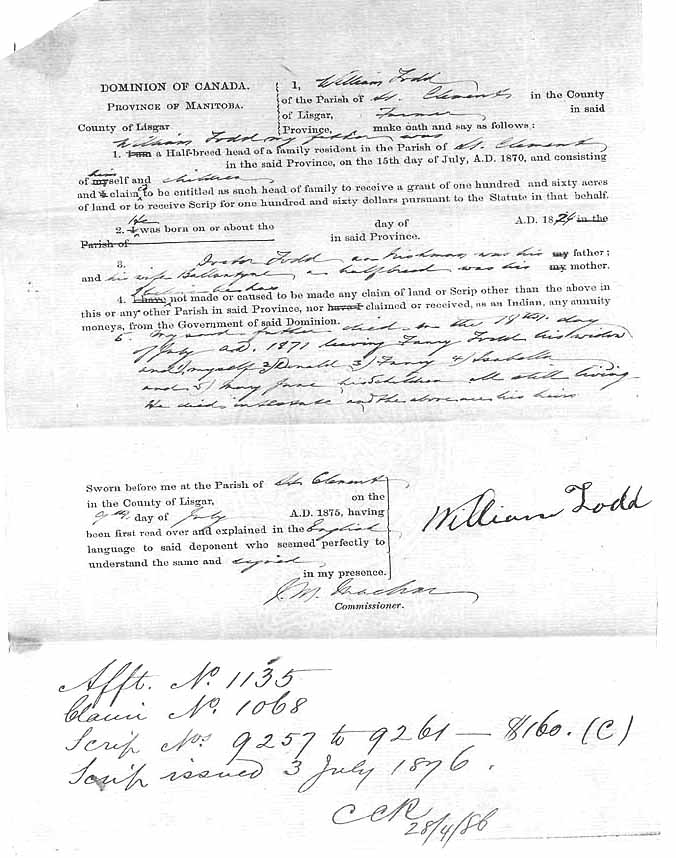 DOMINION OF CANADA.
PROVINCE OF MANITOBA.
County of Lisgar
I, William Todd
of the Parish of St. Clements in the County
of Lisgar, Farmer in said
Province, make oath and say as follows:
William Todd my father was
1. I am a Half-breed head of a family resident in the Parish of St. Clements
in the said Province, on the 15th day of July, A.D. 1870, and consisting
him
of myself and children
and I claim to be entitled as such head of family to receive a grant of one hundred and sixty acres
of land or to receive Scrip for one hundred and sixty dollars pursuant to the Statute in that behalf.
He
2. I was born on or about the day of A.D. 1824 in the
Parish of in said Province.
3. Doctor Todd an Irishman was his my father;
and his wife Ballantyne a halfbreed was his my mother.
he has
4. I have not made or caused to be made any claim of land or Scrip other than the above in
this or any other Parish in said Province, nor have I claimed or received, as an Indian, any annuity
moneys, from the Government of said Dominion.
My said father died on the 19th day
of July A.D. 1871 leaving Fanny Todd his widow
and 1) myself 2) Donald 3) Fanny 4) Isabella
and 5) Mary Jane his children all still living
He died intestate and the above are his heirs
Sworn before me at the Parish of St. Clements
in the County of Lisgar, on the
9th day of July A.D. 1875, having
been first read over and explained in the English
language to said deponent who seemed perfectly to
understand the same and signed
in my presence.
Commissioner.
William Todd
Afft. No. 1135
Claim No. 1068
Scrip Nos. 9257 to 9261 — $160. (C)
Scrip issued 3 July 1876.
CCR
28/4/86